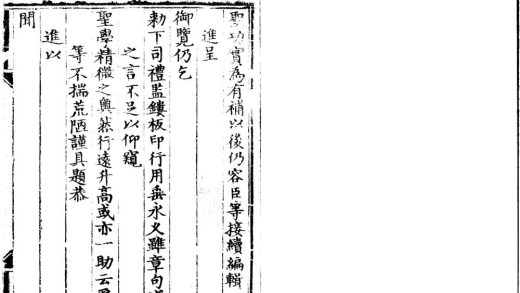 聖功實為有補以後仍容臣等接續編輯
進呈
御覽仍乞
勑下司禮監鏤板印行用垂永久雖章句
之言不足以仰窺
聖學精微之奧然行遠升高或亦一助云
等不揣荒陋謹具題恭
進以
聞